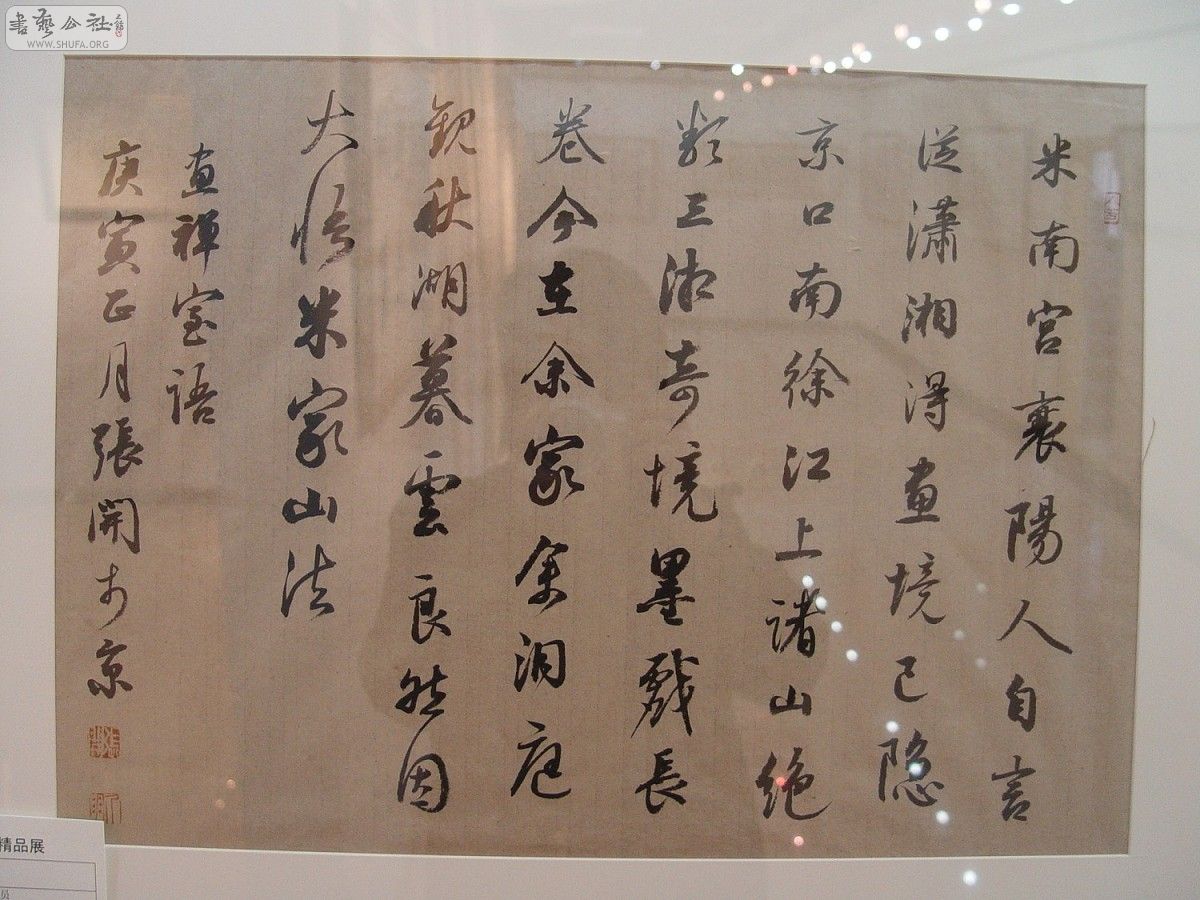 米南宮襄陽人自言
從瀟湘得畫境已隐
京口南徐江上諸山絶
類三湘奇境墨戲長
卷今在余家余洞庭
觀秋湖暮雲良然因
大悟米家山法
画禅室語
庚寅正月張開於京
書藝公社
WWW.SHUFA.ORG
精品展
员